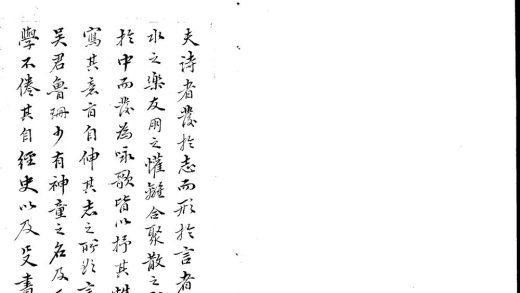 夫詩者發於志而形於言者
水之樂友朋之懽離合聚散之
於中而發為咏歌皆以抒其性
寫其意言自伸其志之所欲言
吳君魯珊少有神童之名及
學不倦其自經史以及